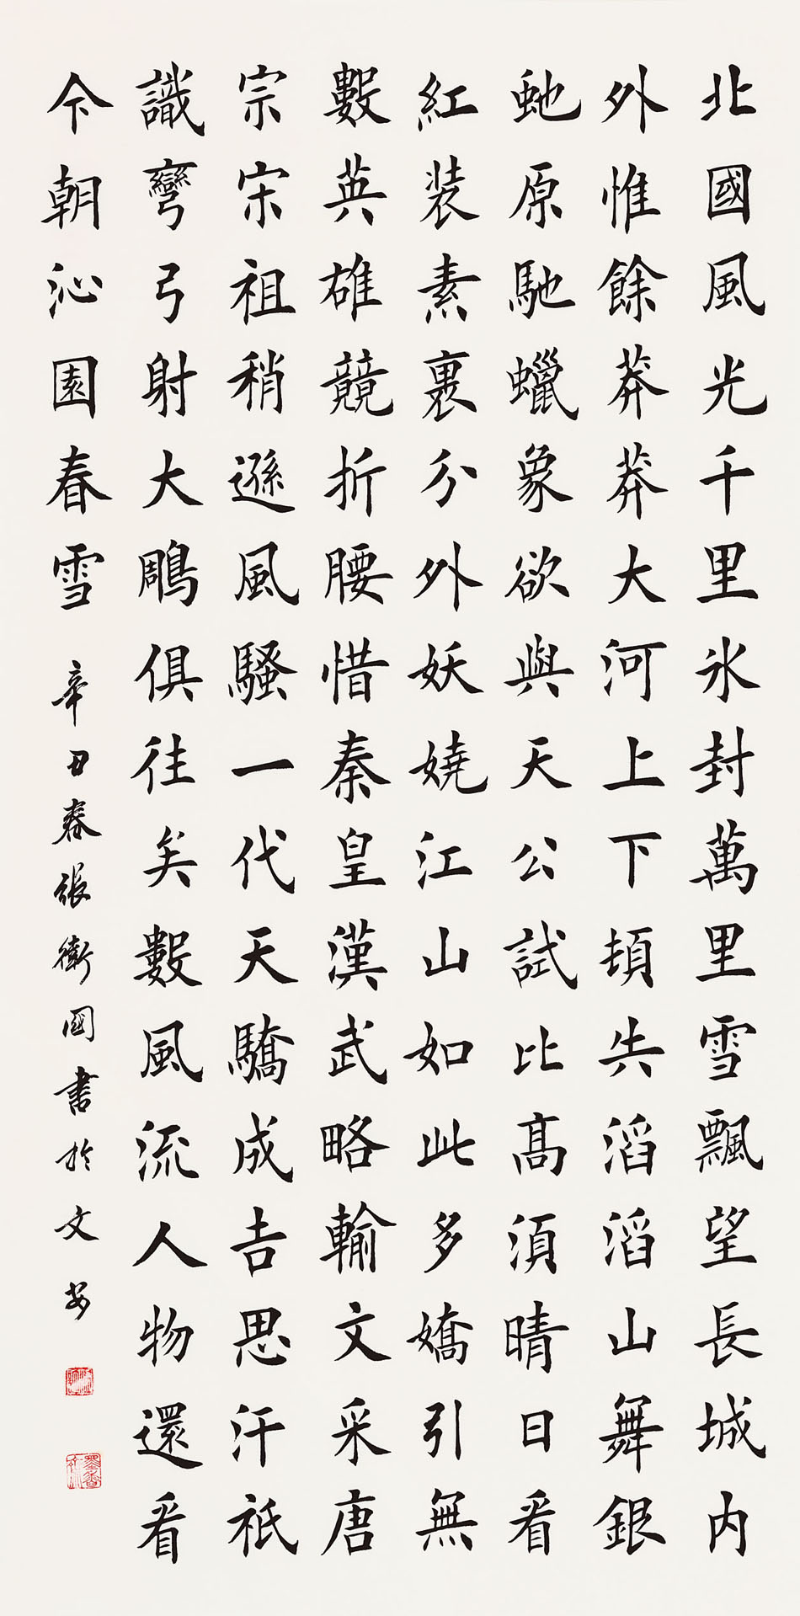 北國風光千里氷封萬里雪飄望長城内
外惟餘莽莽大河上下頓失滔滔山舞銀
虵原馳蠟象欲與天公試比髙須晴日看
紅装素裹分外妖嬈江山如此多嬌引無
數英雄競折腰惜秦皇漢武略輸文采唐
宗宋祖稍遜風騷一代天驕成吉思汗祇
識彎弓射大鵰俱往矣數風流人物還看
今朝沁園春雪 辛丑春張衛國書於文安